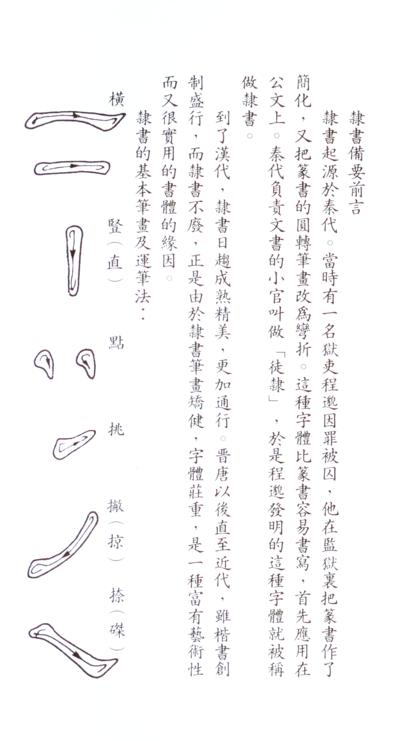 隸書備要前言
隸書起源於秦代。當時有一名獄吏程邈因罪被囚，他在監獄裏把篆書作了
簡化，又把篆書的圓轉筆畫改爲彎折。這種字體比篆書容易書寫，首先應用在
公文上。秦代負責文書的小官叫做「徒隸」，於是程邈發明的這種字體就被稱
做隸書。
到了漢代，隸書日趨成熟精美，更加通行。晋唐以後直至近代，雖楷書創
制盛行，而隸書不廢，正是由於隸書筆畫矯健，字體莊重，是一種富有藝術性
而又很實用的書體的緣因。
隸書的基本筆畫及運筆法：
橫 竪（直） 點 挑 撇（掠） 捺（磔）